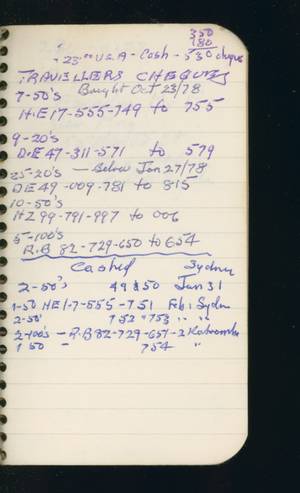 350
180
23rd USA - Cash - 530 cheques
TRAVELLERS CHEQUES
7-50's Bought Oct 23/78
HE17-555-749 to 755
9-20's
DE47-311-571 to 579
25-20's - Below Jan 27/78
DE49-009-781 to 815
10-50's
HZ 99-791-997 to 006
5-100's
R.B 82-729-650 to 654
Cashed Sydney
2-50's 49 & 50 Jan 31
1-50 HE17-555-751 Feb: Sydn
2-50' 752 & 753 " "
2-100's - R.B 82-729-651-2
1 50 - 754 "